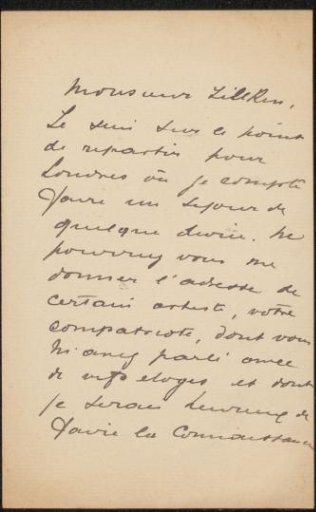 Monsieur Zilcken,
Je suis sur le point
de repartir pour
Londres où je compte
faire un séjour de
quelque durée. Ne
pourriez vous me
donner l'adresse de
certain artiste, votre
compatriote, dont vous
m'avez parlé avec
de vifs éloges et dont
je serais heureux de
faire la connaissance